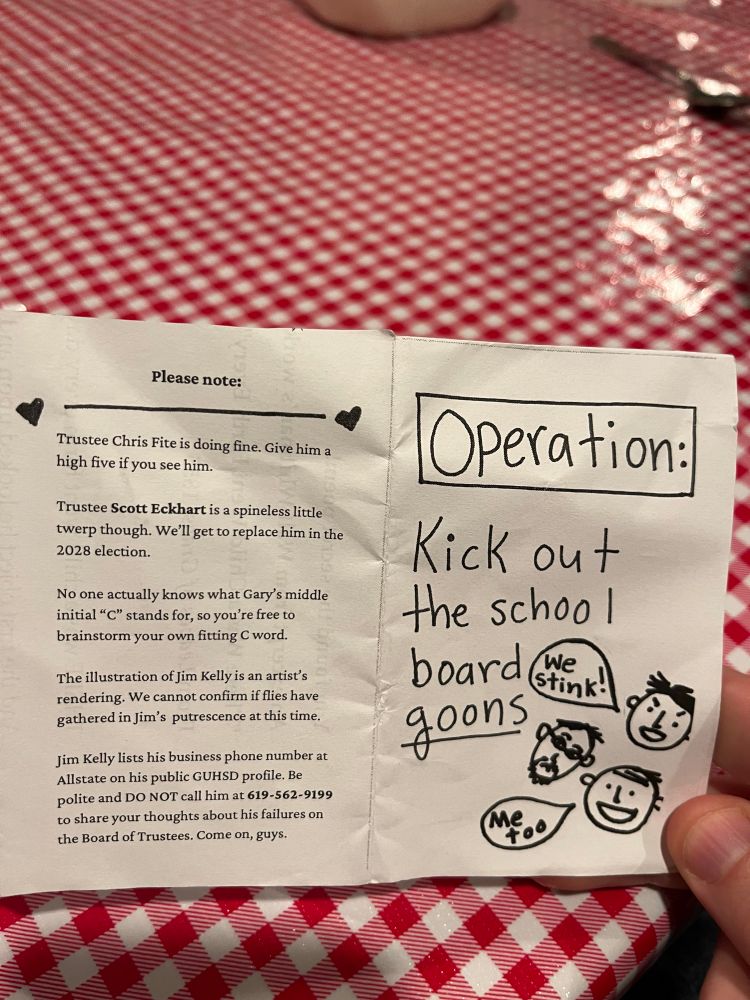 Please note:
Trustee Chris Fite is doing fine. Give him a
high five if you see him.
Trustee Scott Eckhart is a spineless little
twerp though. We'll get to replace him in the
2028 election.
No one actually knows what Gary's middle
initial “C” stands for, so you're free to
brainstorm your own fitting C word.
The illustration of Jim Kelly is an artist's
rendering. We cannot confirm if flies have
gathered in Jim's putrescence at this time.
Jim Kelly lists his business phone number at
Allstate on his public GUHSD profile. Be
polite and DO NOT call him at 619-562-9199
to share your thoughts about his failures on
the Board of Trustees. Come on, guys.
Operation:
Kick out
the school
board
goons
We
stink!
Me
too